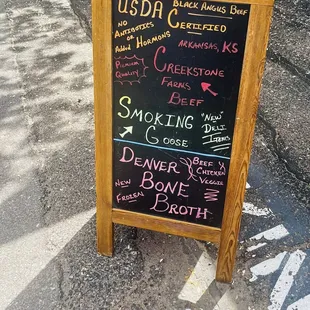 USDA Black Angus Beef
No Antibiotics or Added Hormons
Certified
Arkansas, KS
Premium Quality
Creekstone
Farms
Beef
Smoking
Goose
"New" Deli Items
Denver
Bone
Broth
Beef
Chicken
Veggie
New Frozen